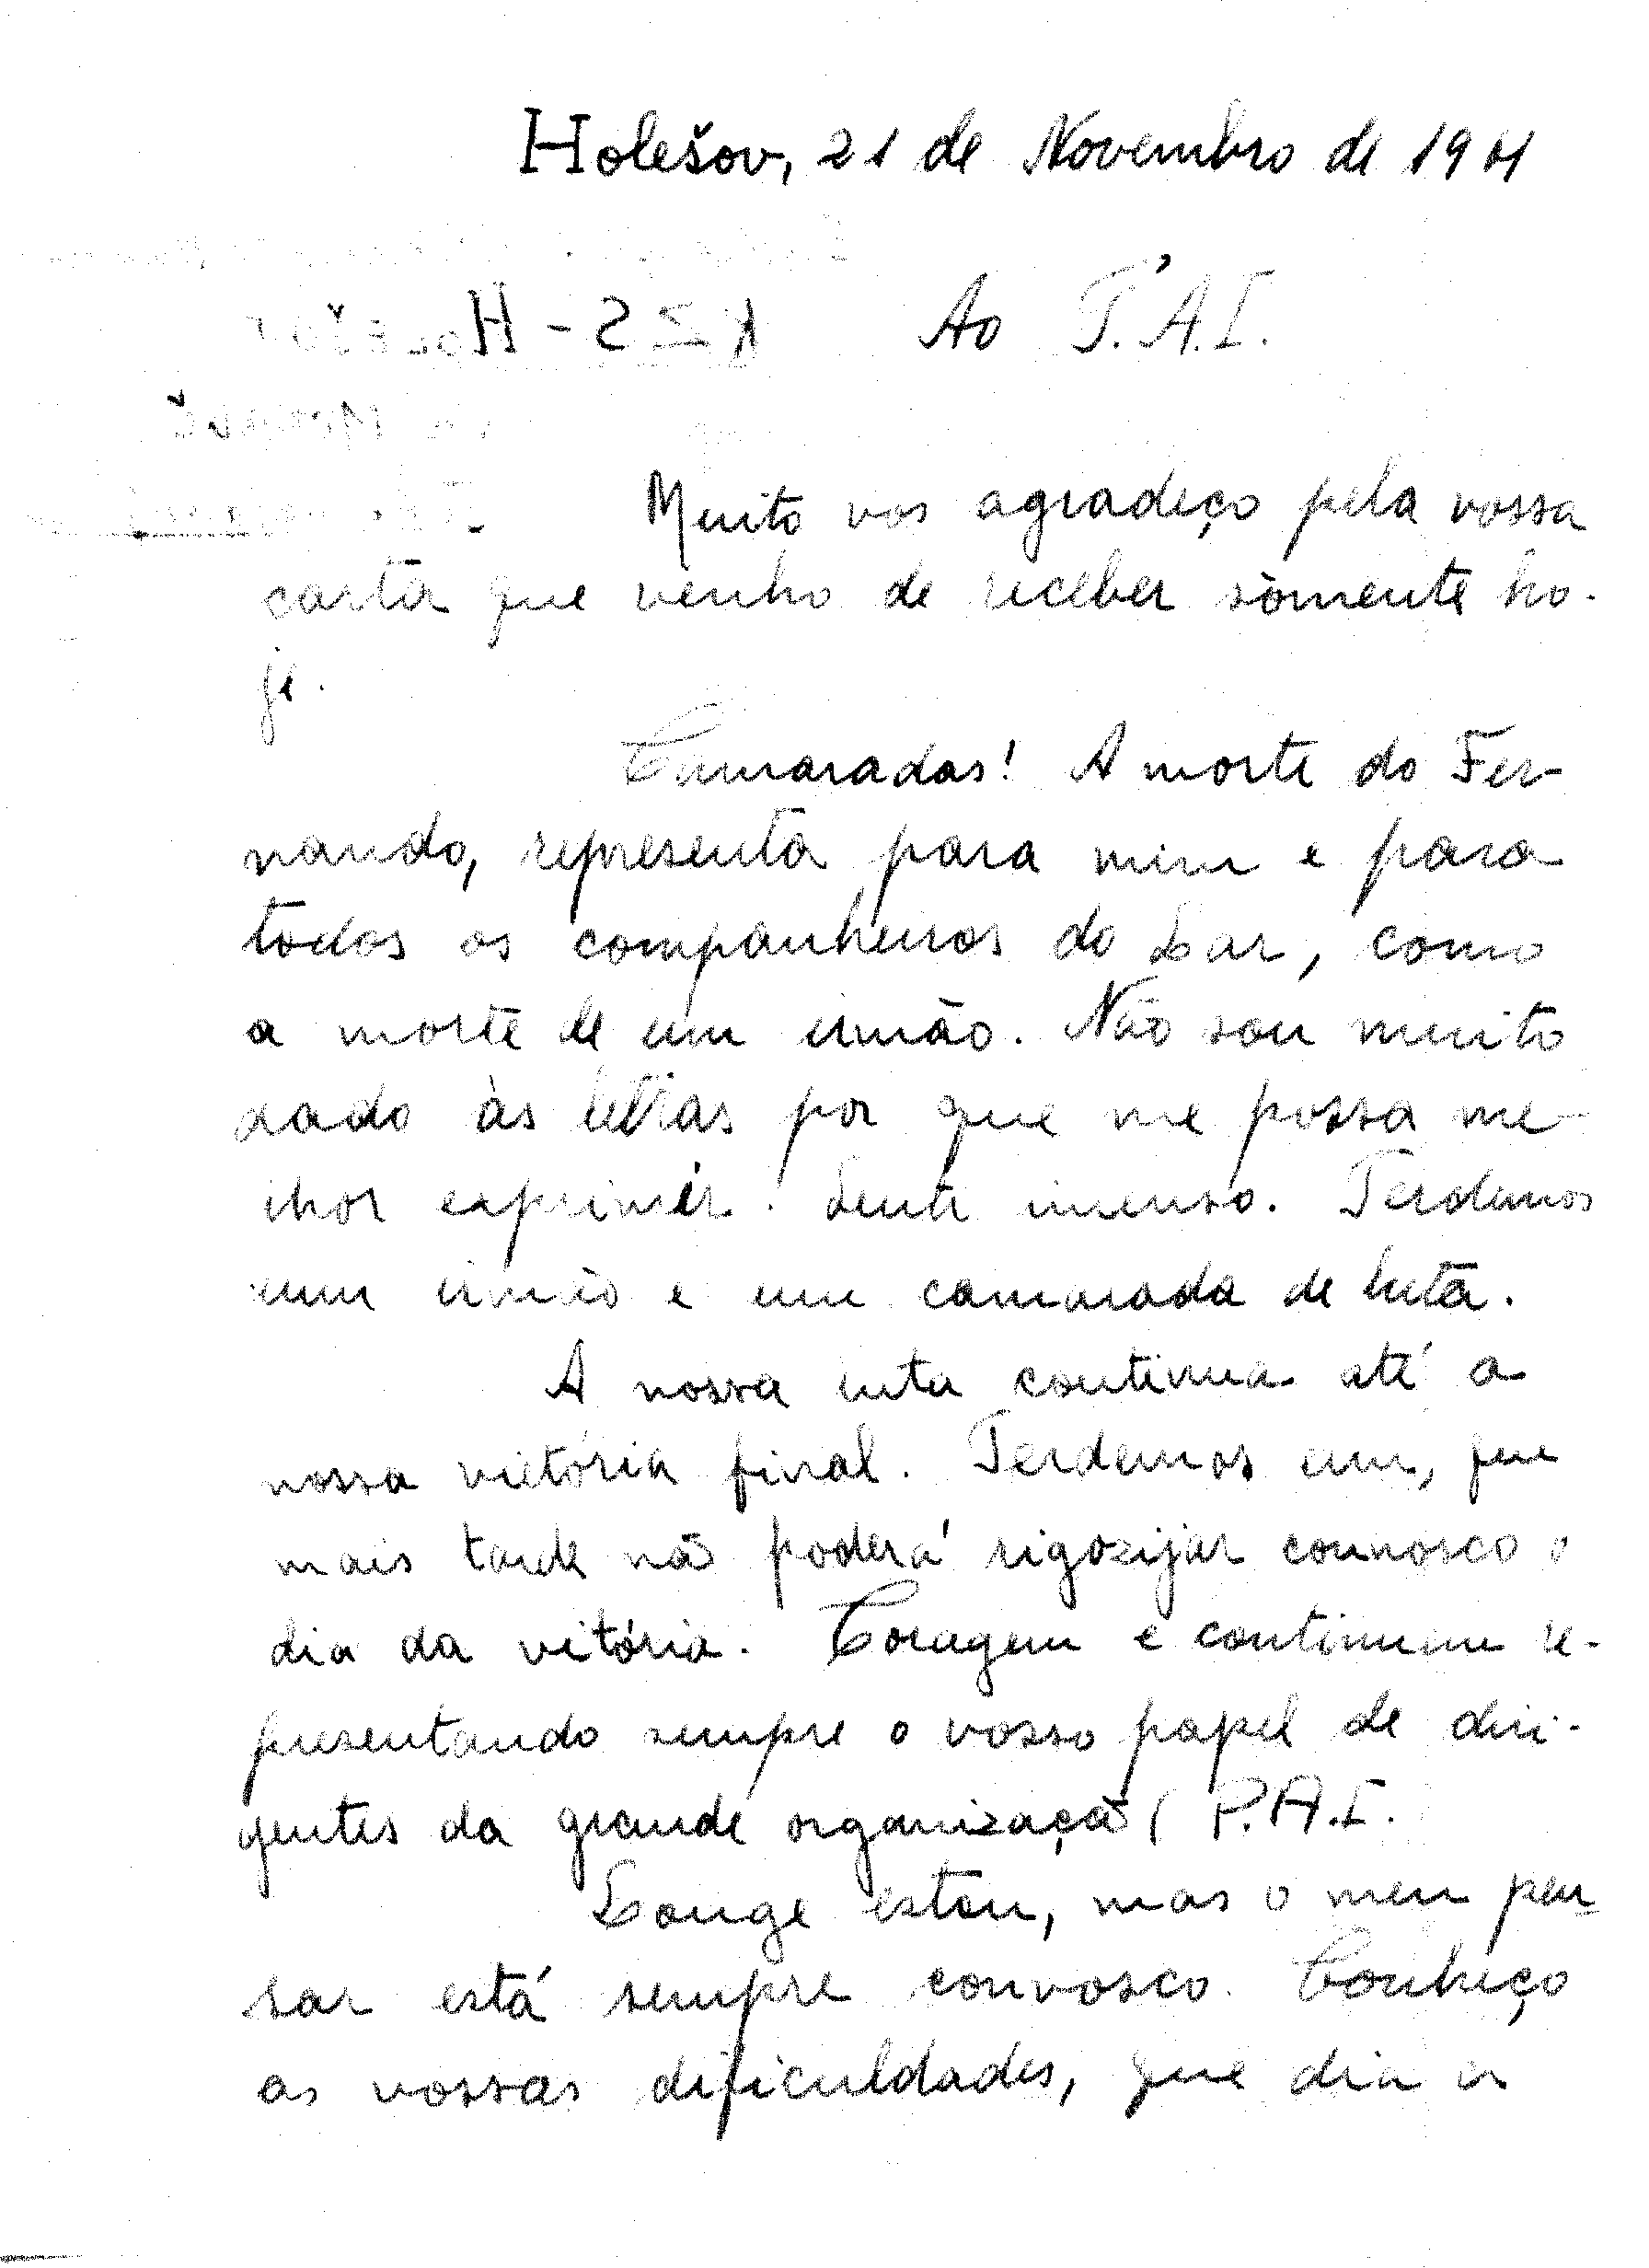 Holešov, 21 de Novembro de 1961
Ao P.A.I.
KZS - HOLEŠOV
Muito vos agradeço pela vossa
carta que venho de receber sòmente ho-
je.
Camaradas! A morte do Fer-
nando, representa para mim e para
todos os companheiros do Lar, como
a morte de um irmão. Não sou muito
dado às letras por que me possa me-
lhor exprimir. Senti imenso. Perdemos
um irmão e um camarada de luta.
A nossa luta continua até a
nossa victória final. Perdemos um, que
mais tarde não poderá rigozijar connosco o
dia da vitória. Coragem e continuem re-
presentando sempre o vosso papel de diri-
gentes da grande organização P.A.I.
Longe estou, mas o meu pen-
sar está sempre convosco. Conheço
as vossas dificuldades, que dia a